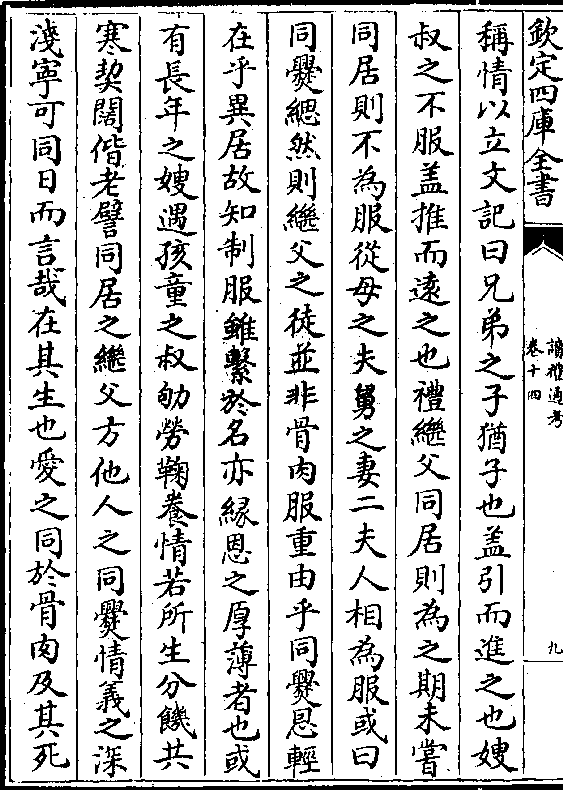 欽定四庫全書
讀禮通考
卷十四
九
稱情以立文記曰兄弟之子猶子也盖引而進之也嫂
叔之不服盖推而逺之也禮繼父同居則為之期未嘗
同居則不為服從母之夫舅之妻二夫人相為服或曰
同爨緦然則繼父之徒並非骨肉服重由乎同爨恩輕
在乎異居故知制服雖繫於名亦緣恩之厚薄者也或
有長年之嫂遇孩童之叔劬勞鞠養情若所生分饑共
寒契闊偕老譬同居之繼父方他人之同爨情義之深
淺寧可同日而言哉在其生也愛之同於骨肉及其死